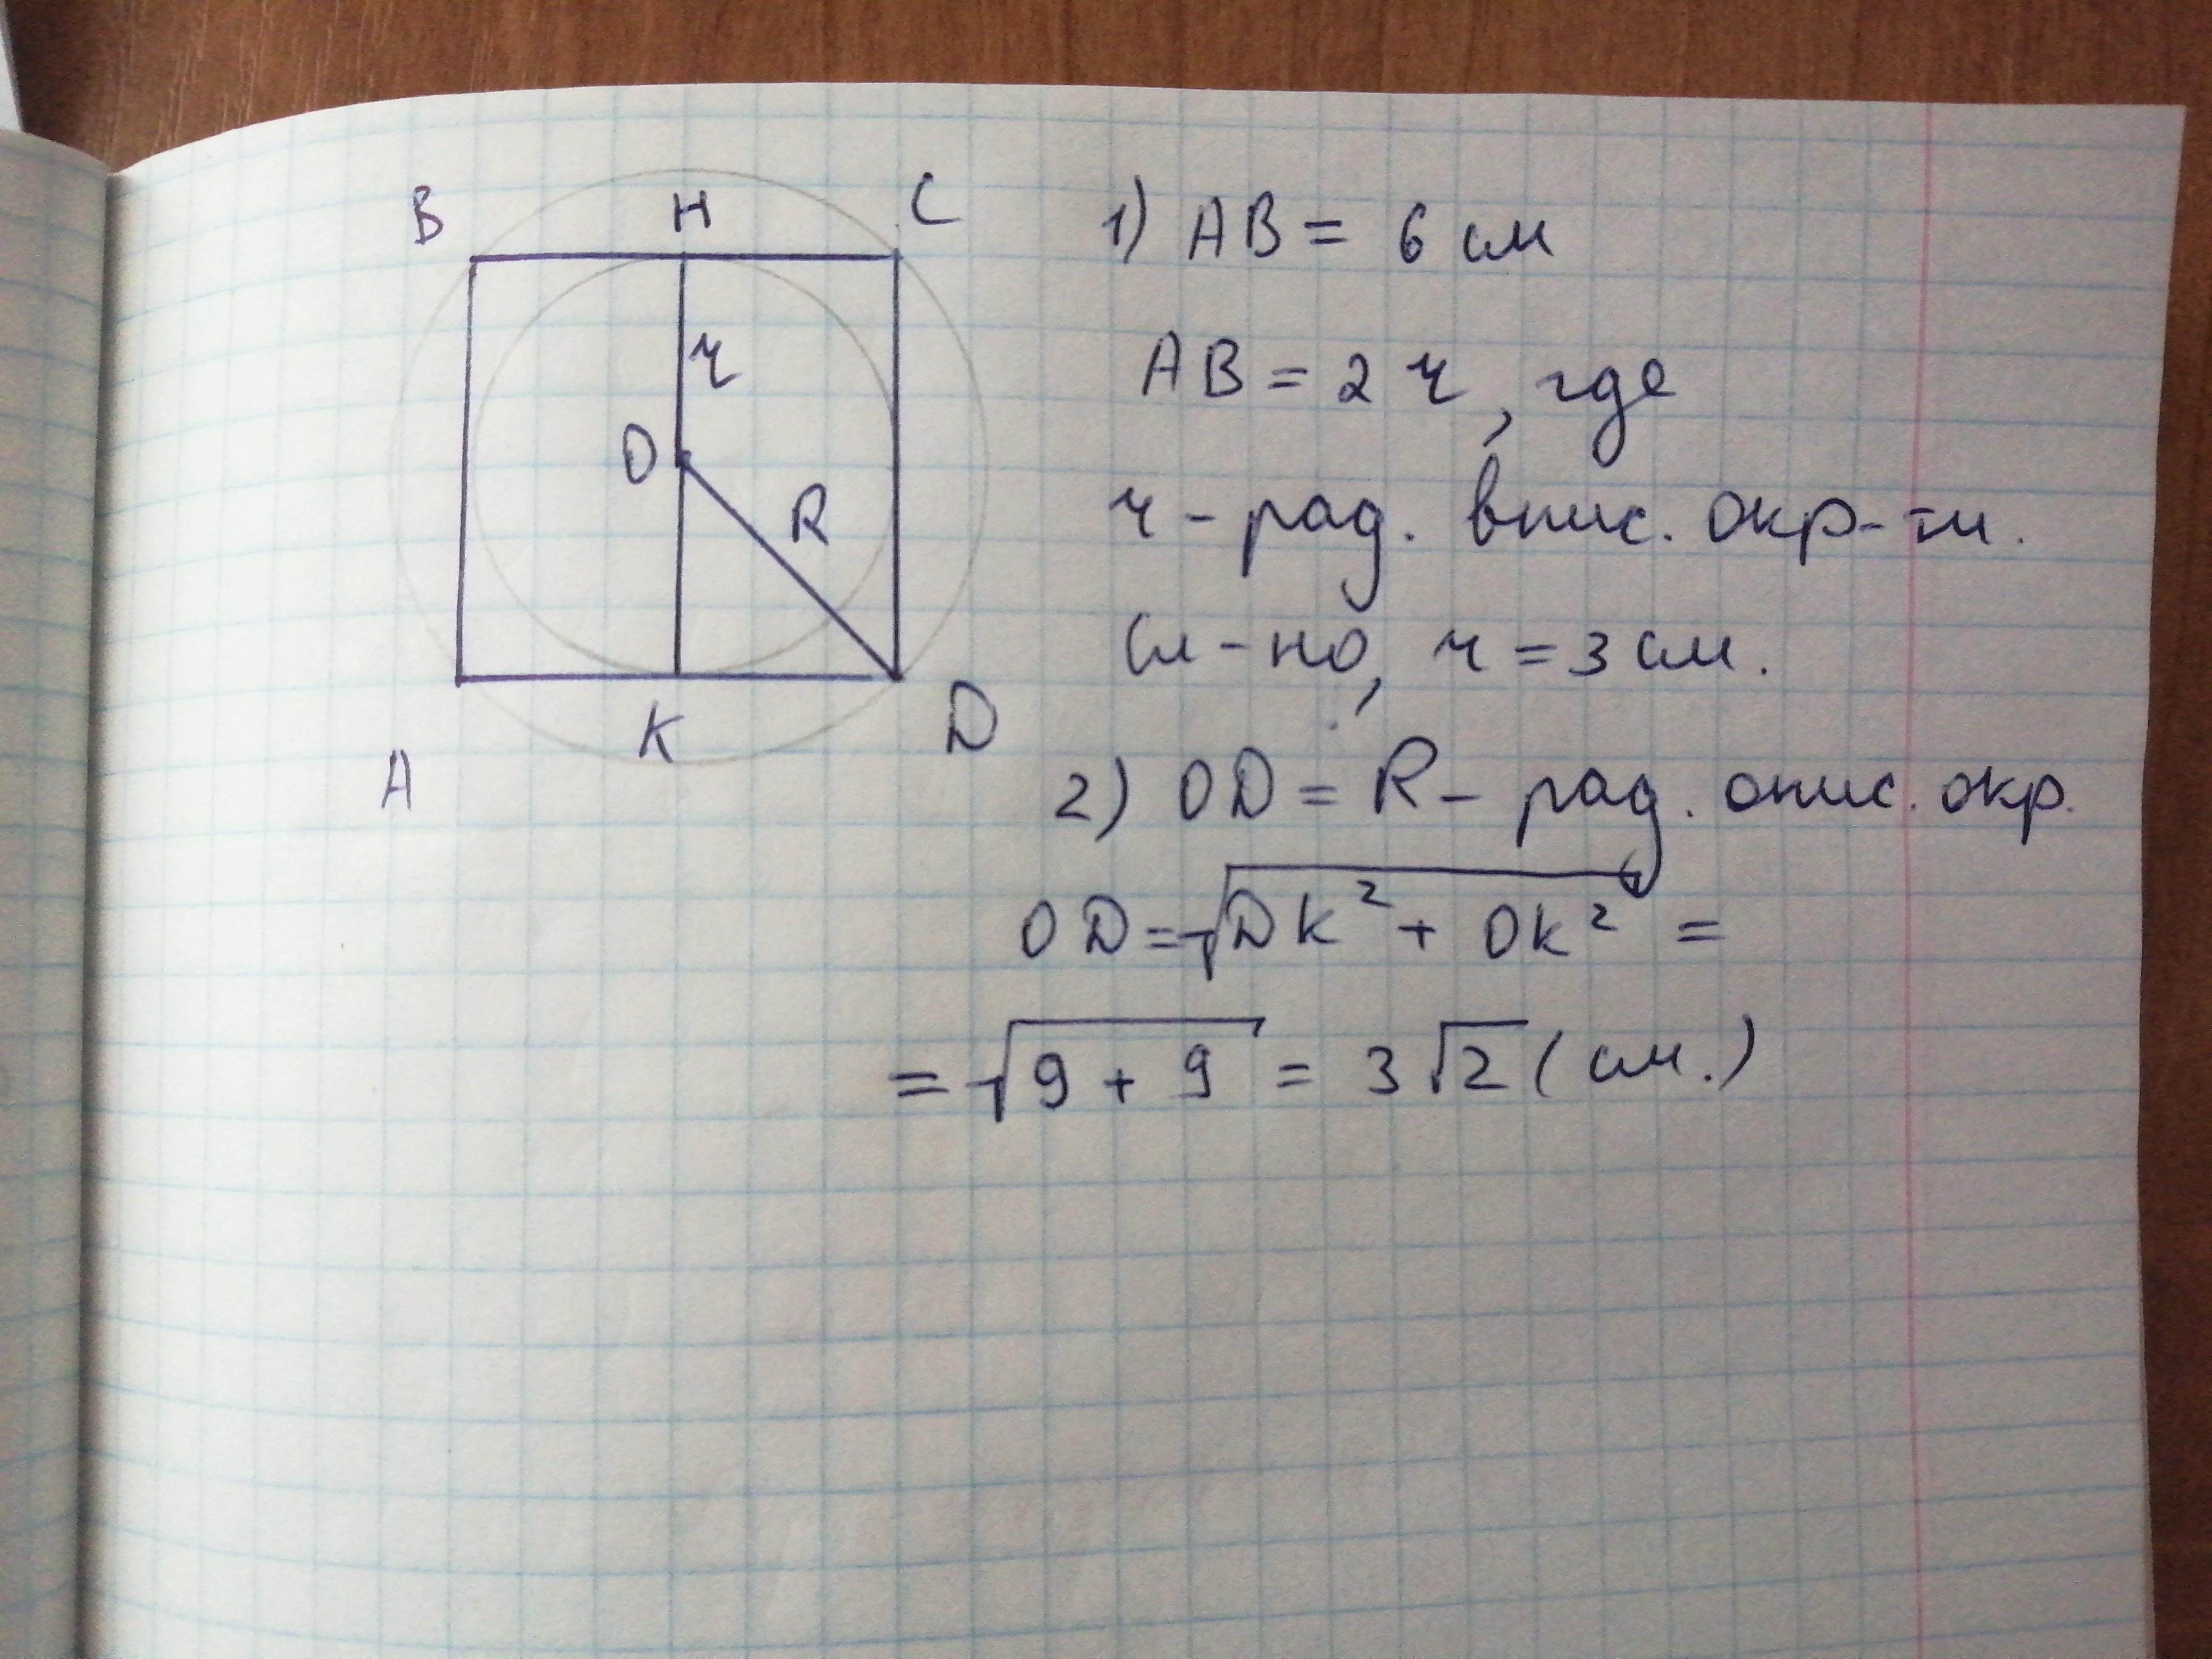 B H C
r
O
R
K
A
D
1) AB = 6 см
AB = 2 r, где
r - рад. впис. окр-ти.
Сл-но, r = 3 см.
2) OD = R - рад. опис. окр.
OD = √DK² + OK² =
= √9 + 9 = 3√2 (см.)